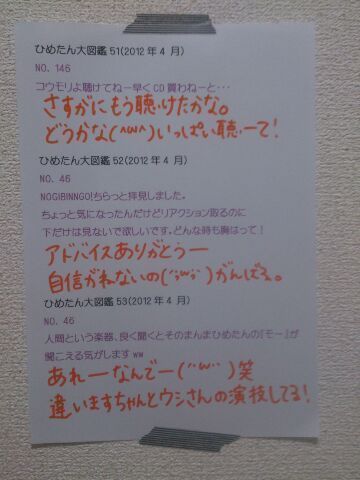 ひめたん大図鑑 51(2012 年 4 月)
NO. 146
コウモリよ聴けてねー早く CD 買わねーと･･･
さすがにもう聴けたかな。
どうかな(^ω^)いっぱい聴いーて!
ひめたん大図鑑 52(2012 年 4 月)
NO. 46
NOGIBINNGO!ちらっと拝見しました。
ちょっと気になったんだけどリアクション取るのに
下だけは見ないで欲しいです。どんな時も胸はって!
アドバイスありがとうー
自信がねないの(´;ω;`)がんばる。
ひめたん大図鑑 53(2012 年 4 月)
NO. 46
人間という楽器、良く聞くとそのまんまひめたんの『モー』が
聞こえる気がします ww
あれーなんでー(´･ω･`)笑
違いますちゃんとウシさんの演技してる!